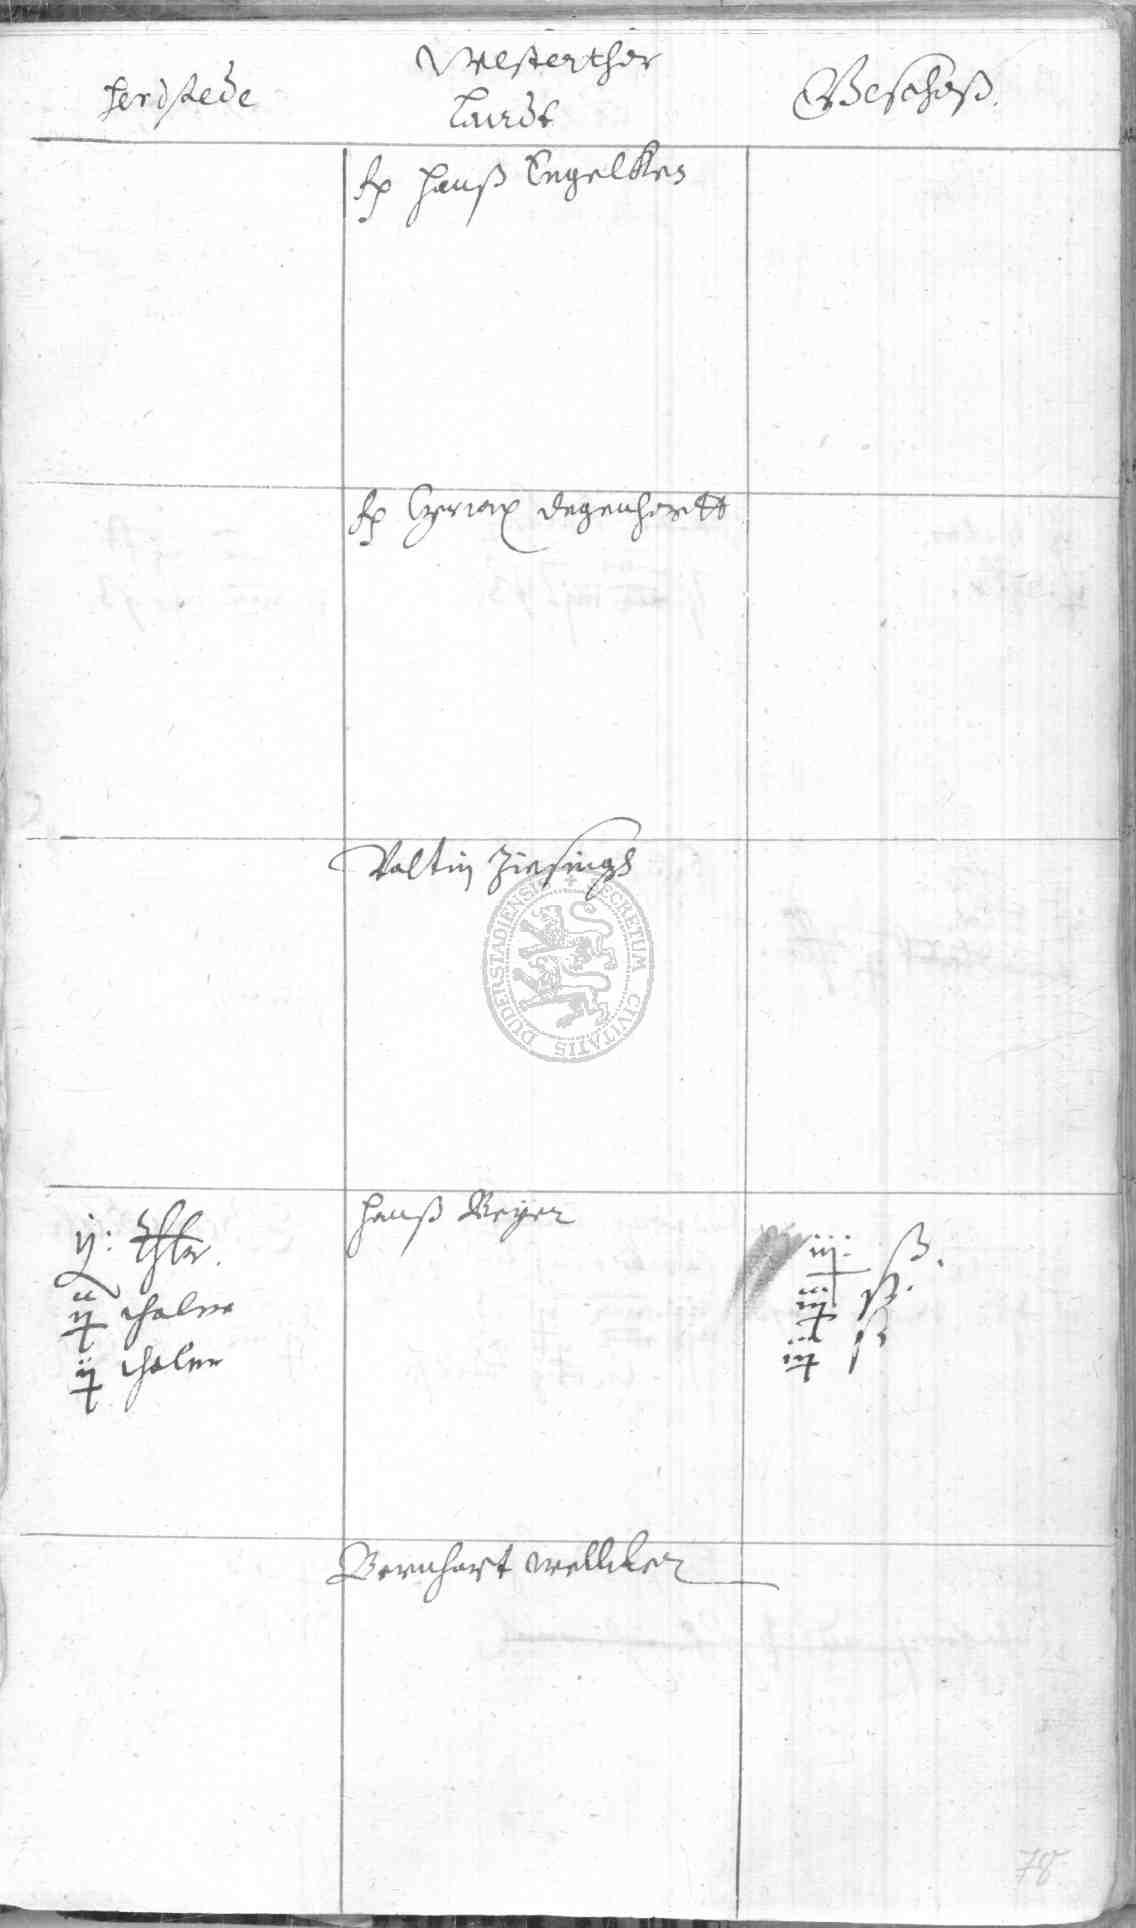 Herdstede
Westerthor
Landt
Geschoß.
Hanß Engelken
Cyriax Degenhartt
Valtin Ziesingk
ij: thlr.
ij thaler
ij thaler
Hanß Meyer
iij: ß.
iij ß.
iij ß
Bernhart Wellcker
SECRETUM CIVITATIS DUDERSTADIENSIS
78